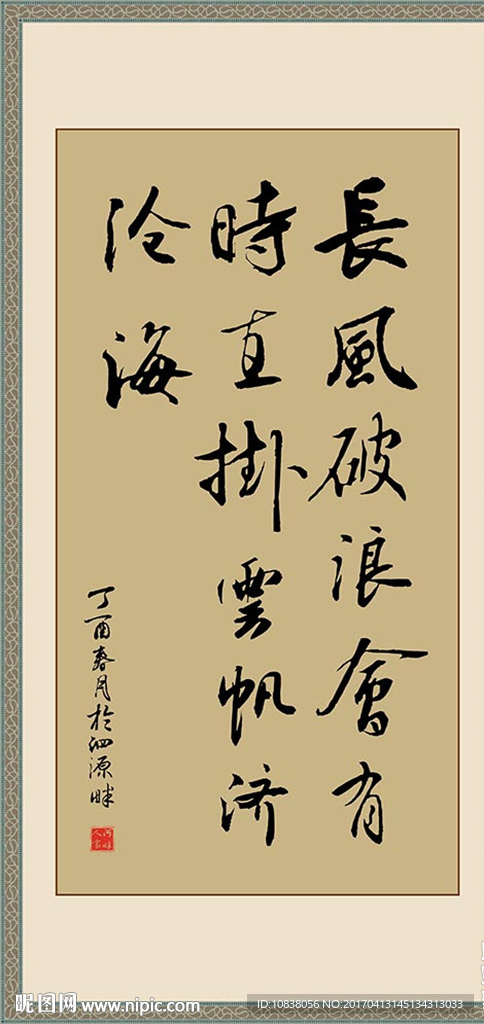 長風破浪會有
時直掛雲帆济
沧海
丁酉春月於泗源畔
昵图网 www.nipic.com
ID:10838056 NO:20170413145134313033